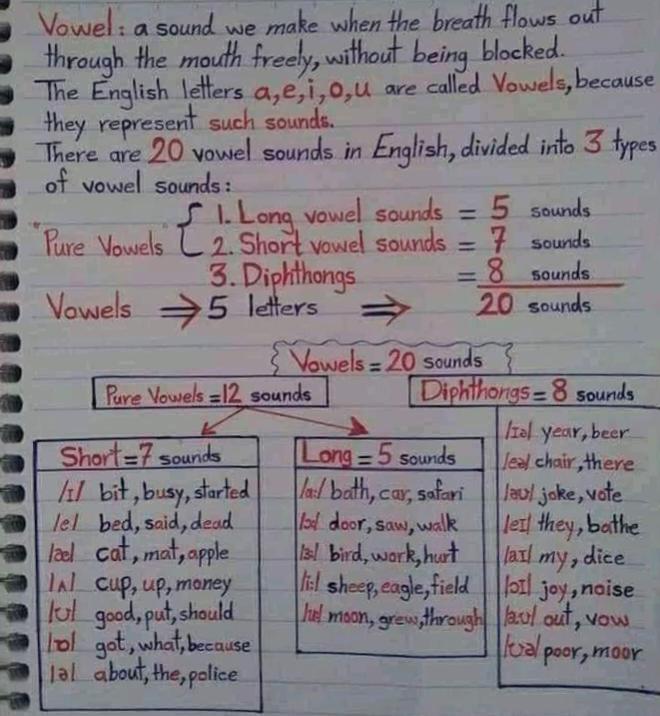 Vowel: a sound we make when the breath flows out
through the mouth freely, without being blocked.
The English letters a,e,i,o,u are called Vowels, because
they represent such sounds.
There are 20 vowel sounds in English, divided into 3 types
of vowel sounds:
"Pure Vowels" { 1. Long vowel sounds = 5 sounds
2. Short vowel sounds = 7 sounds
3. Diphthongs = 8 sounds
Vowels ⇒ 5 letters ⇒ 20 sounds
{ Vowels = 20 sounds }
Pure Vowels = 12 sounds
Short = 7 sounds
/ɪ/ bit, busy, started
/e/ bed, said, dead
/æ/ cat, mat, apple
/ʌ/ cup, up, money
/ʊ/ good, put, should
/ɒ/ got, what, because
/ə/ about, the, police
Long = 5 sounds
/a:/ bath, car, safari
/ɔ:/ door, saw, walk
/ɜ:/ bird, work, hurt
/i:/ sheep, eagle, field
/u:/ moon, grew, through
Diphthongs = 8 sounds
/ɪə/ year, beer
/eə/ chair, there
/əʊ/ joke, vote
/eɪ/ they, bathe
/aɪ/ my, dice
/ɔɪ/ joy, noise
/aʊ/ out, vow
/ʊə/ poor, moor